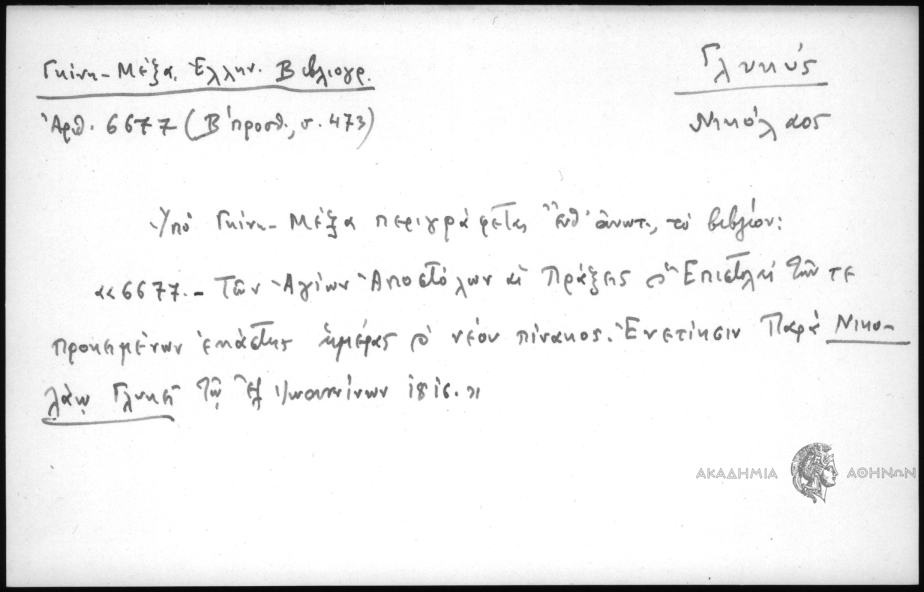 Γκίνη-Μέξα, Ἑλλην. Βιβλιογρ.
Ἀριθ. 6677 (Β΄ προσθ., σ. 473)
Γλυκύς
Νικόλαος
Ὑπό Γκίνη-Μέξα περιγράφεται, ἔνθ' ἀνωτ., τό βιβλίον:
«6677.- Τῶν Ἁγίων Ἀποστόλων αἱ Πράξεις καὶ Ἐπιστολαί τῶν τε
προκειμένων ἑκάστης ἡμέρας καὶ νέου πίνακος. Ἐνετίησιν Παρά Νικο-
λάῳ Γλυκεῖ τῷ ἐξ Ἰωαννίνων
ΑΚΑΔΗΜΙΑ ΑΘΗΝΩΝ